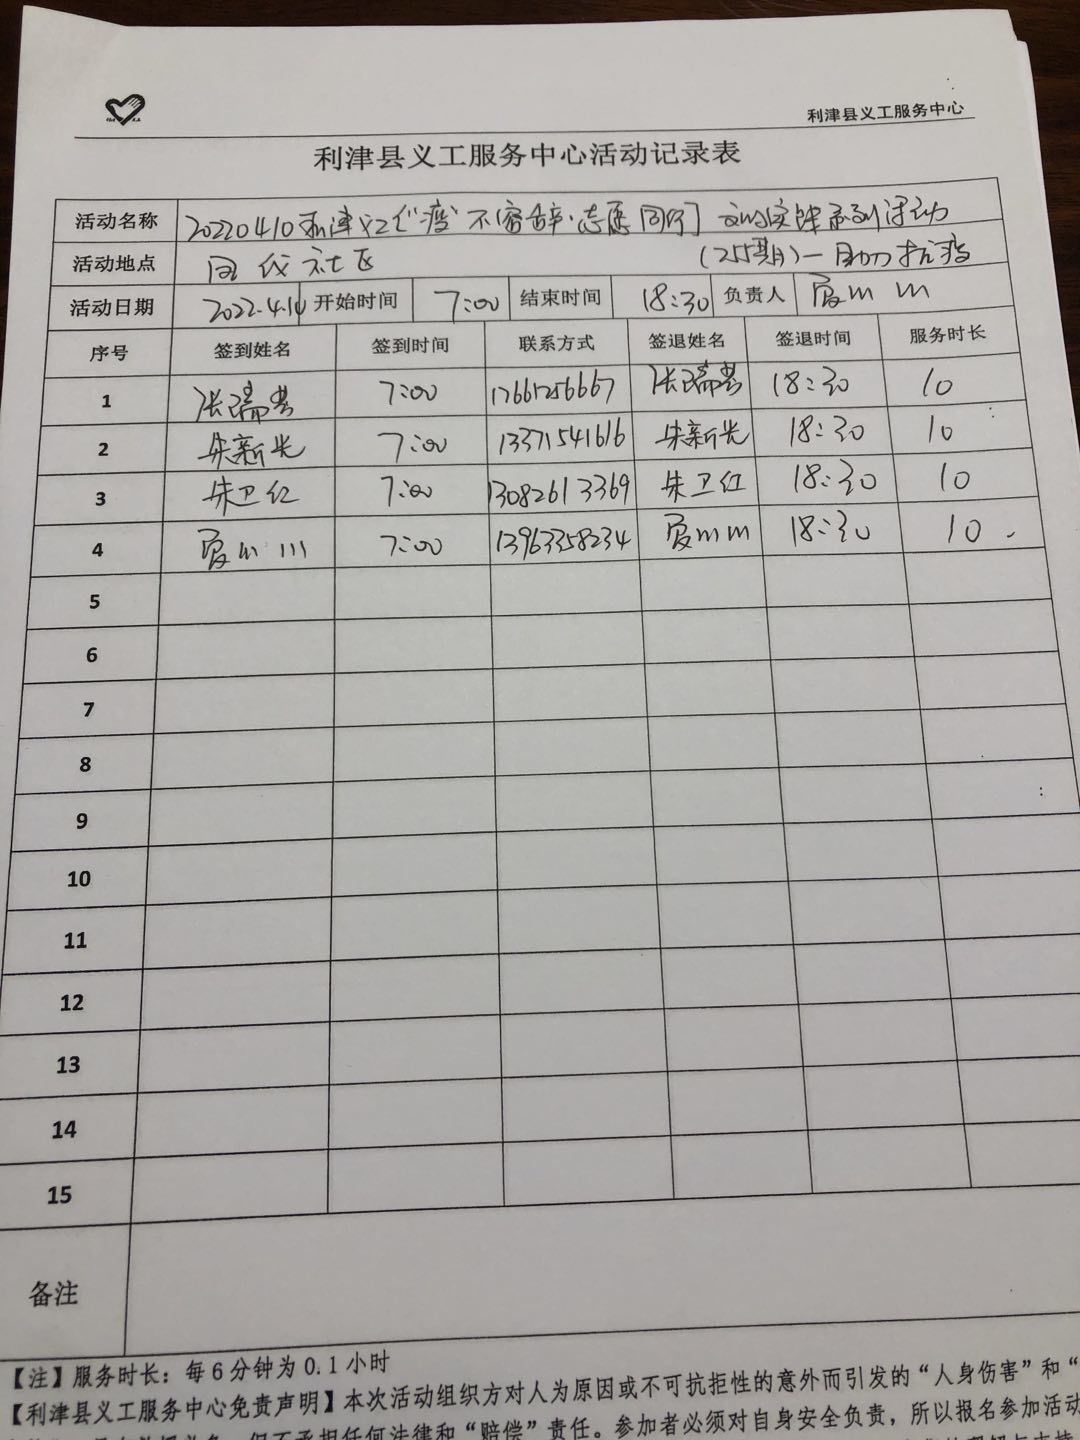 利津县义工服务中心
利津县义工服务中心活动记录表
活动名称 20220410利津义工“疫”不容辞·志愿同行 文明实践系列活动
活动地点 社区 (255期)一助力抗疫
活动日期 2022.4.14 开始时间 7:00 结束时间 18:30 负责人
序号 签到姓名 签到时间 联系方式 签退姓名 签退时间 服务时长
1 张瑞芸 7:00 17661256667 张瑞芸 18:30 10
2 朱新光 7:00 13371541616 朱新光 18:30 10
3 朱卫红 7:00 13082613369 朱卫红 18:30 10
4 7:00 13963358234 18:30 10
5
6
7
8
9
10
11
12
13
14
15
备注
【注】服务时长：每6分钟为0.1小时
【利津县义工服务中心免责声明】本次活动组织方对人为原因或不可抗拒性的意外而引发的“人身伤害”和“
但不承担任何法律和“赔偿”责任。参加者必须对自身安全负责，所以报名参加活动